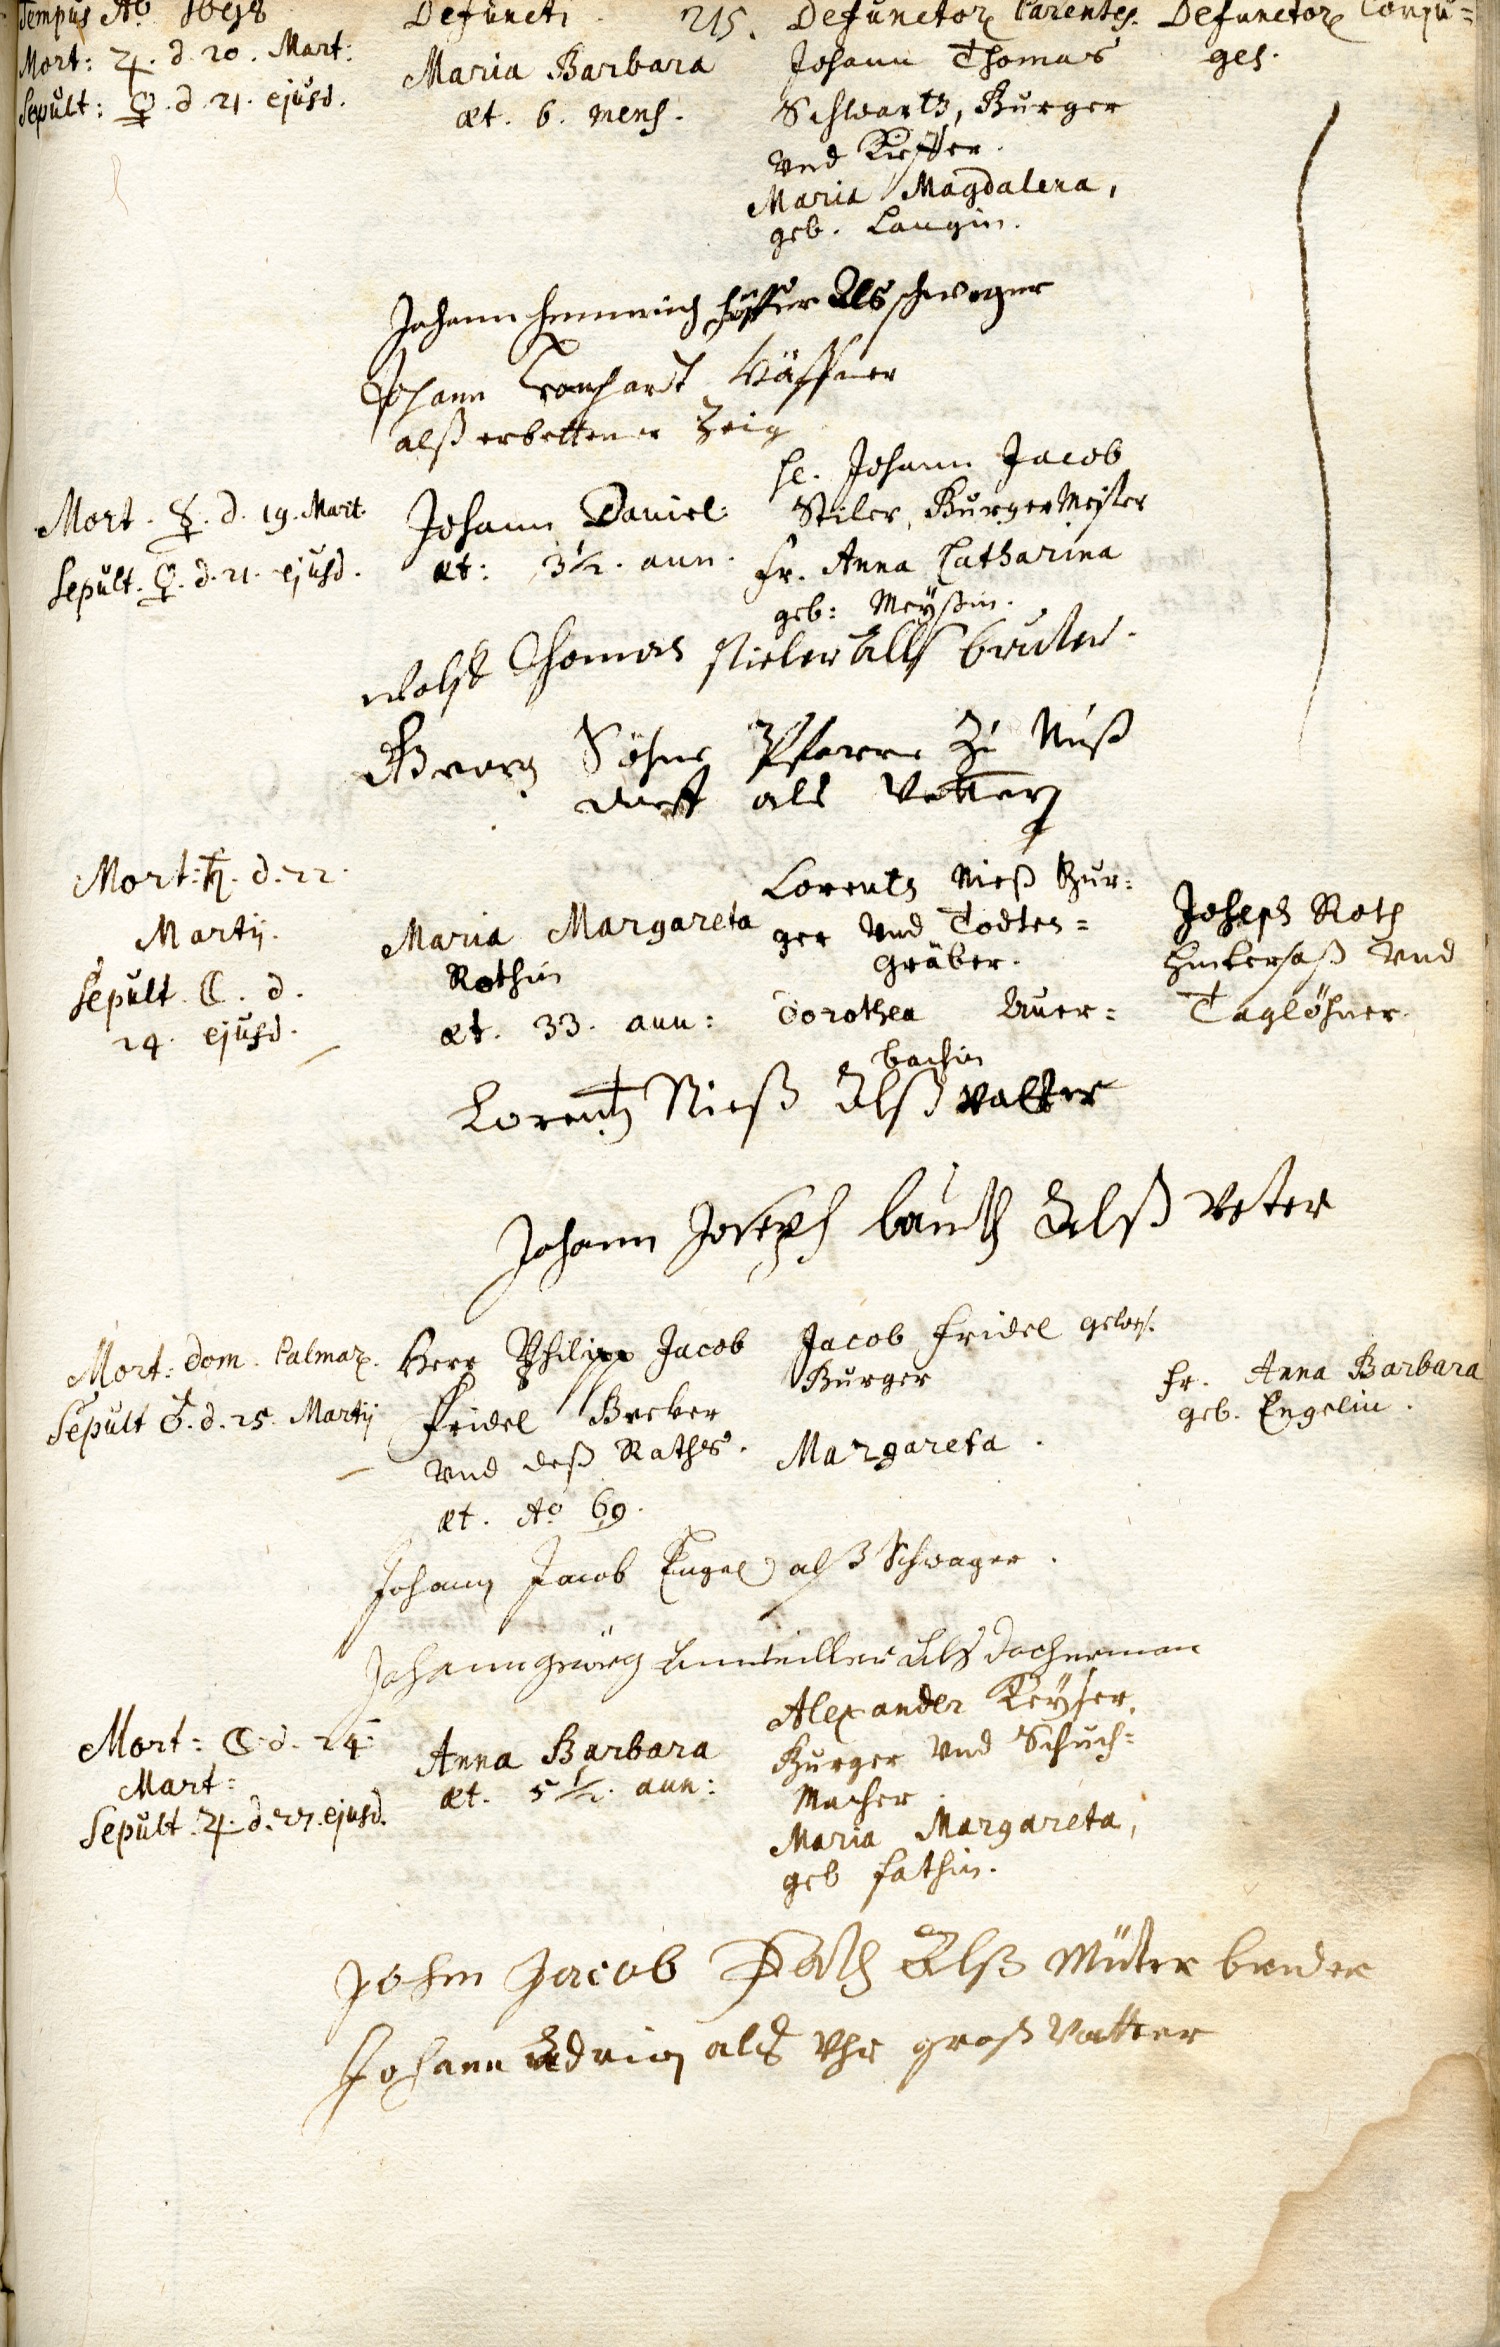 Tempus Aō Defuncti. 215. Defunctorꝝ Parentes. Defunctorꝝ Conju=
ges.
Mort: ♃. d. 20. Mart:
Sepult: ♀. d. 21. ejusd.
Maria Barbara
æt. 6. mens.
Johann Thomas
Schwartz, Burger
vnd Kieffer.
Maria Magdalena,
geb. Langin.
Johann Heinrich Als schwager
Johann Leonhardt
alß erbettener Zeig
Mort. ☿. d. 19. Mart.
Sepult. ♀. d. 21. ejusd.
Johann Daniel.
æt: 3½. ann.
H. Johann Jacob
Stiler, BurgerMeister
Fr. Anna Catharina
geb: Meyßin.
Wolff Thomas stieler Alls bruder.
Georg Söhne Pfarrer zu Nuß
dorff als Vetter
Mort: ♄. d. 22.
Martij.
Sepult. ☾. d.
24. ejusd.
Maria Margareta
Rothin
æt. 33. ann:
Lorentz Nieß Bur=
ger vnd Todten=
gräber.
Dorothea Auer=
bachin
Joseph Roth
Hintersaß vnd
Taglöhner.
Lorentz Nieß Alß Vatter
Johann Joseph Alß Veter
Mort: Dom. Palmaꝝ.
Sepult ♂. d. 25. Martij
Herr Philipp Jacob
Fridel Becker
vnd deß Raths.
æt. Aō 69.
Jacob Fridel gewes.
Burger
Margareta.
Fr. Anna Barbara
geb. Engelin.
Johann Jacob Engel alß Schwager.
Johann Als dochterman
Mort: ☾. d. 24.
Mart:
Sepult. ♃. d. 27. ejusd.
Anna Barbara
æt. 5½. ann:
Alexander Keyser,
Burger vnd Schuch=
Macher.
Maria Margareta,
geb Fathin.
Johan Jacob Fath Alß Muter bruder
Johann Adrian als Vhr groß Vatter